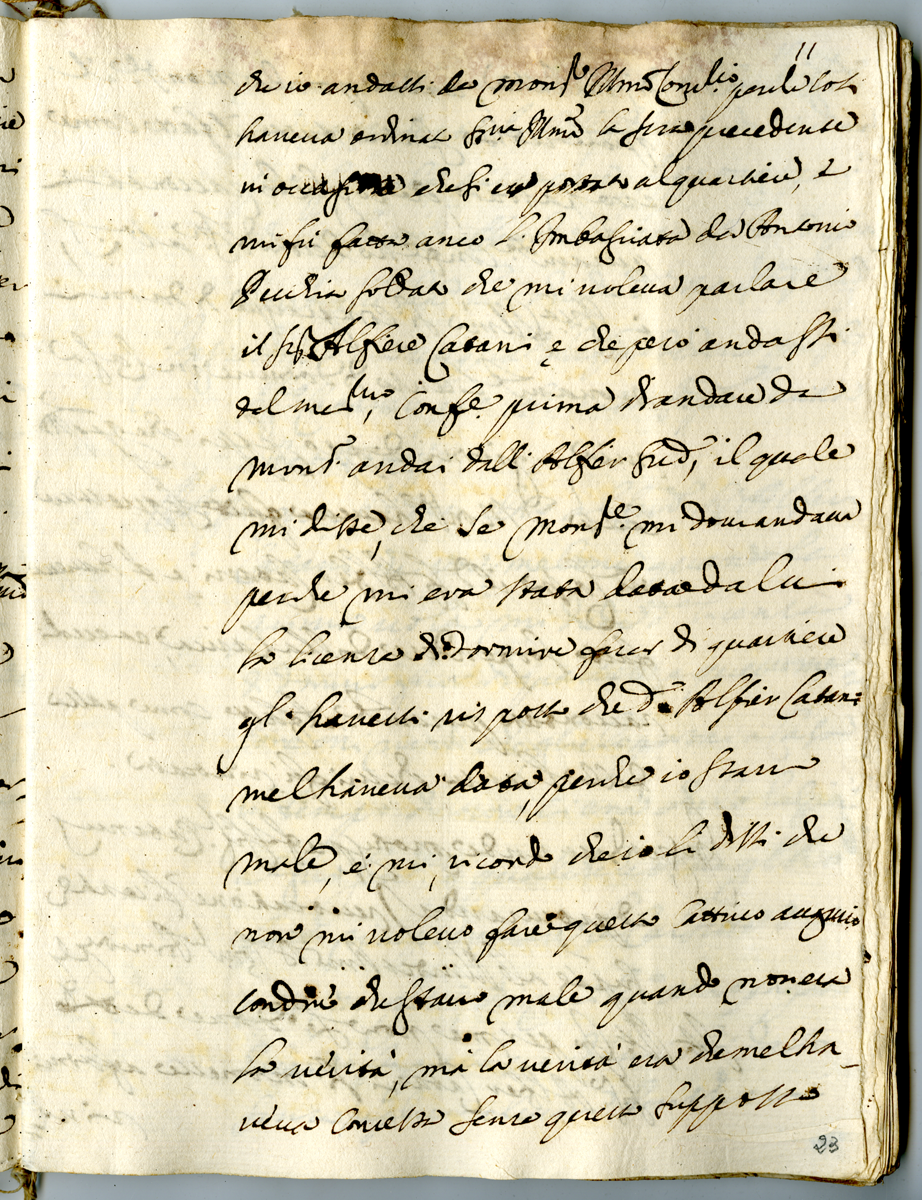 11
che io andassi da Mons.re Ill.mo perche cosi
haveva ordinat S.ria Ill.ma la sera precedente
in occasione che si era portato al quartiere, e
mi fù fatta anco l'Imbasciata da Antonio
soldat che mi voleva parlare
il Sig.r Alfiere Catani e che però andassi
dal med.mo, Conf.e prima d'andare da
Mons.r andai dall'Alfier sud.o, il quale
mi disse, che se Mons.re mi domandava
perche mi era stata data da lui
la licenza di dormire fuor di quartiere
gli havessi risposto che d.o Alfier Catani
me l'haveva data, perche io stavo
male, e mi ricordo che io li dissi che
non mi volevo fare questo cattivo augurio
con dire che stavo male quando non era
la verità, mà la verità era che me l'ha_
veva concessa senza questo supposto
23